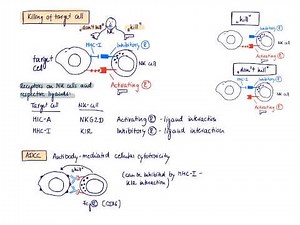 Killing of target cell
"don't kill"
"kill"
MHC-I
Inhibitory (R)
target cell
NK cell
Activating (R)
"kill"
Inhibitory (R)
NK cell
Activating (R)
"don't kill"
Receptors on NK cells and respective ligands:
Target cell NK-cell
MIC-A NKG2D Activating (R) - ligand interaction
MHC-I KIR Inhibitory (R) - ligand interaction
ADCC Antibody-mediated cellular cytotoxicity
"kill"
(can be inhibited by MHC-I-
KIR interaction)
(CD16)